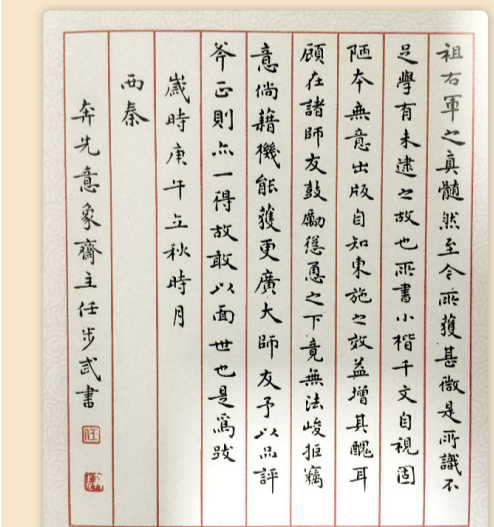 祖右軍之真髓然至今所獲甚微是所識不
足學有未逮之故也所書小楷千文自視固
陋本無意出版自知東施之效益增其醜耳
顧在諸師友鼓勵慫恿之下竟無法峻拒竊
意倘藉機能獲更廣大師友予以品評
斧正則亦一得故敢以面世也是爲跋
歲時庚午立秋時月
西秦
奔先意象齋主任步武書